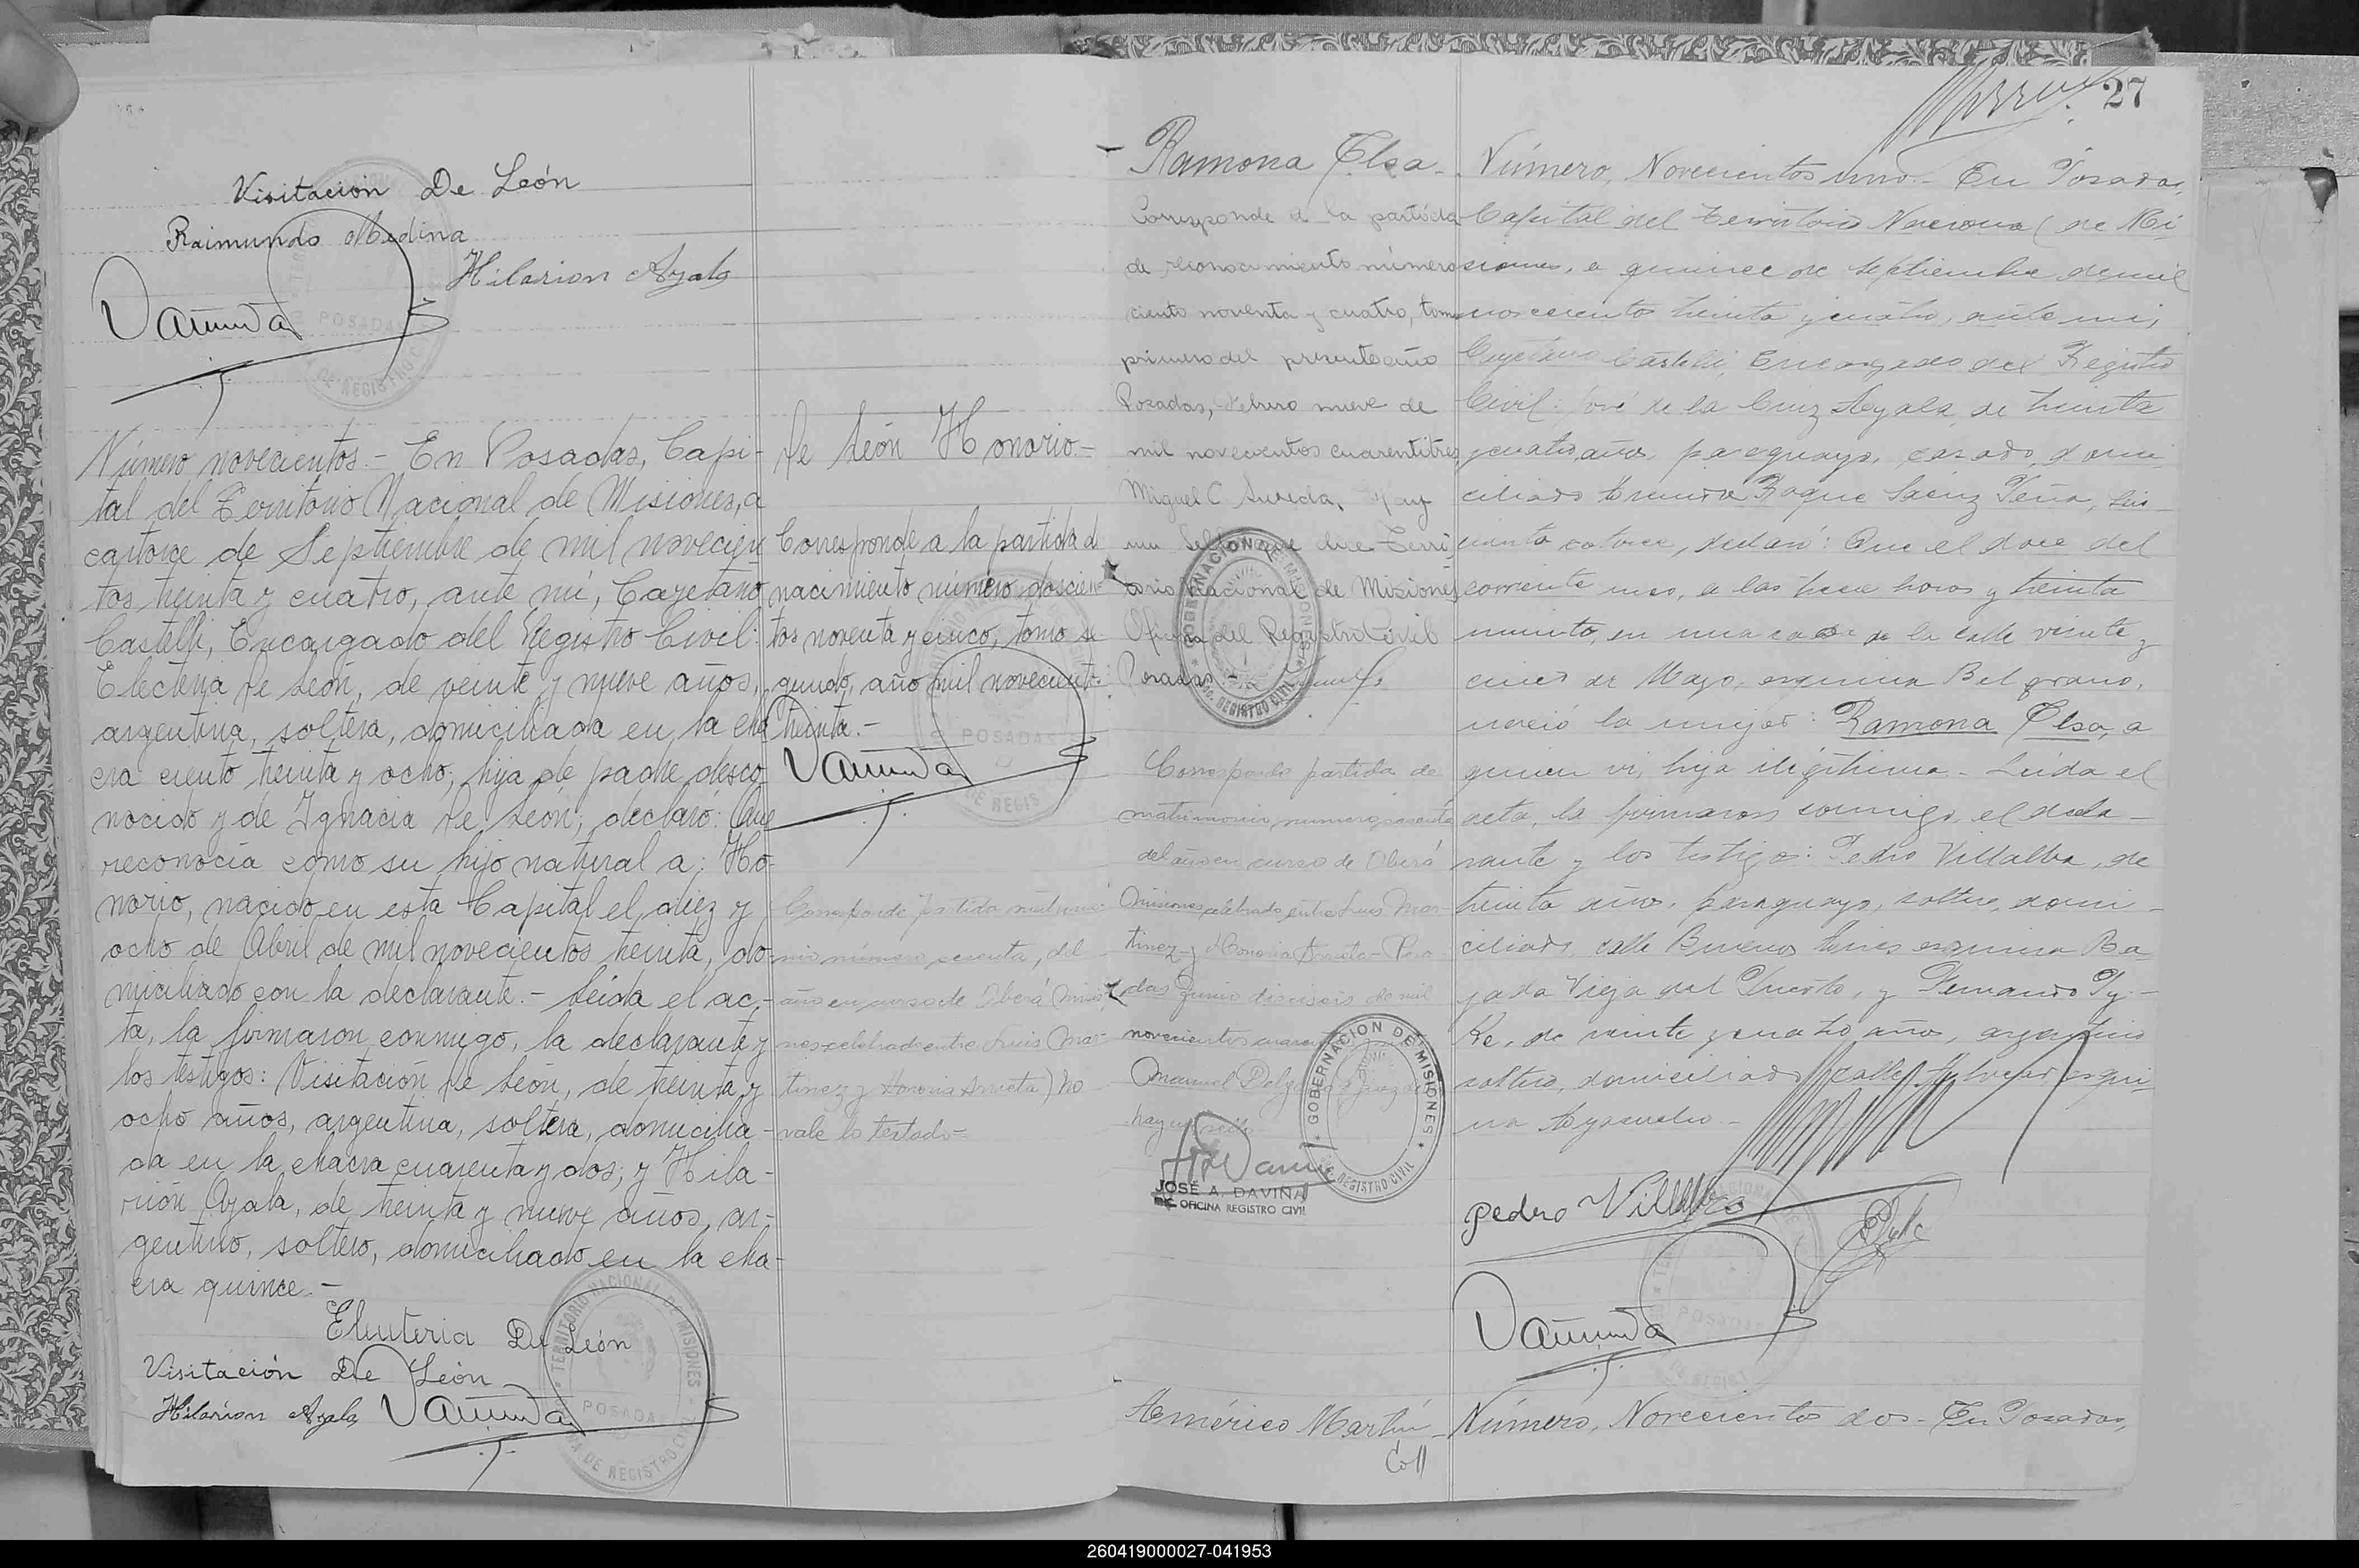 Visitación De León
Raimundo Medina
Hilarion Ayala
POSADAS
DE REGISTRO
Número novecientos.- En Posadas, Capi-
tal del Territorio Nacional de Misiones, a
catorce de Septiembre de mil novecien
tos treinta y cuatro, ante mí, Cayetano
Castelli, Encargado del Registro Civil:
de León, de veinte y nueve años,
argentina, soltera, domiciliada en la cha
cra ciento treinta y ocho, hija de padre desco
nocido y de Ignacia de León; declaró: Que
reconocía como su hijo natural a: Ho-
norio, nacido en esta Capital el diez y
ocho de Abril de mil novecientos treinta, do-
miciliado con la declarante.- Leída el ac-
ta, la firmaron conmigo, la declarante y
los testigos: Visitación de León, de treinta y
ocho años, argentina, soltera, domicilia-
da en la chacra cuarenta y dos; y Hila-
rión Ayala, de treinta y nueve años, ar-
gentino, soltero, domiciliado en la cha-
cra quince.-
Eleuteria De León
Visitación De León
Hilarion Ayala
TERRITORIO NACIONAL DE MISIONES
POSADAS
DE REGISTRO
De León Honorio.-
Corresponde a la partida de
nacimiento número doscien-
tos noventa y cinco, tomo se
gundo, año mil novecientos
treinta.-
POSADAS
DE REGIS
Corresponde partida matrimo
nio número sesenta, del
año en curso de Oberá Misio
nes celebrado entre Luis Mar-
tinez y Honoria Arrieta) No
vale lo testado=
27
Ramona Elsa-
Corresponde a la partida
de reconocimiento número
ciento noventa y cuatro, tomo
primero del presente año
Posadas, Febrero nueve de
mil novecientos cuarentitres
Miguel C. Hay
un Sello que dice Terri
torio Nacional de Misiones
Oficina del Registro Civil
Posadas-
GOBERNACION DE MISIONES
REGISTRO CIVIL
Corresponde partida de
matrimonio número sesenta
del año en curso de Oberá
Misiones celebrado entre Luis Mar-
tinez y Honoria Arrieta- Posa-
das Junio dieciseis de mil
novecientos
Manuel
hay un sello
GOBERNACION DE MISIONES
REGISTRO CIVIL
JOSÉ A. DAVIÑA
ENC. OFICINA REGISTRO CIVIL
Número, Novecientos uno.- En Posadas,
Capital del Territorio Nacional de Mi-
siones, a quince de Septiembre de mil
novecientos treinta y cuatro, ante mi,
Cayetano Castelli, Encargado del Registro
Civil: José de la Cruz Ayala, de treinta
y cuatro años, paraguayo, casado, domi-
ciliado Avenida Roque Saenz Peña, seis-
cientos catorce, declaró: Que el doce del
corriente mes, a las trece horas y treinta
minutos, en una casa de la calle veinte y
cinco de Mayo, esquina Belgrano,
nació la mujer: Ramona Elsa, a
quien vi, hija ilegítima.- Leída el
acta, la firmaron conmigo, el decla-
rante y los testigos: Pedro Villalba, de
treinta años, paraguayo, soltero, domi-
ciliado calle Buenos Aires esquina Ba
jada Vieja del Puerto, y Fernando Dy-
ke, de veinte y cuatro años, argentino
soltero, domiciliado calle Bolivar esqui-
na Ayacucho.-
Pedro Villalba
POSADAS
DE REGIST
Américo Martín-
Coll
Número, Novecientos dos- En Posadas,